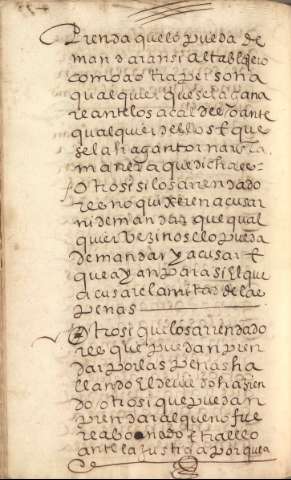 Prenda que lo pueda de
mandar ansi al tablajero
como a otra persona
qualquier que sea a cana
re ante los alcaldes o ante
qualquier dellos E que
se la hagan tornar de la
manera que dicha es
Otrosi si los arrendado
res no quixeren acusar
ni demandar que qual
quier vezino se lo pueda
demandar y acusar E
que ayan para si El que
acusare la mitad de las
penas
Otrosi que los arrendado
res que puedan pren
dar por las penas ha
llando El haziendo
otrosi que puedan
prendar al que no fue
re abonado E traello
ante la Justicia porque a